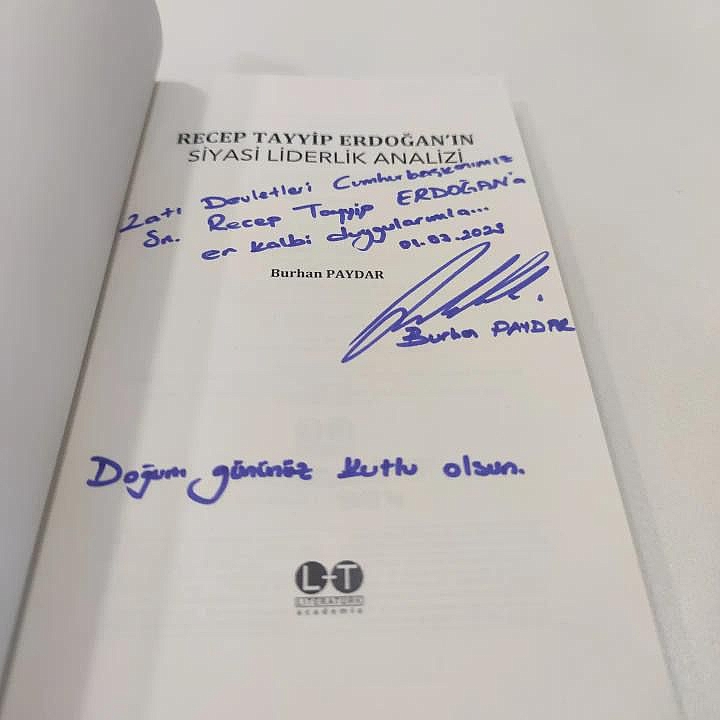 RECEP TAYYİP ERDOĞAN'IN
SİYASİ LİDERLİK ANALİZİ
Zatı Devletleri Cumhurbaşkanımız
Sn. Recep Tayyip ERDOĞAN'a
en kalbi duygularımla...
01.03.2023
Burhan PAYDAR
Burhan PAYDAR
Doğum gününüz kutlu olsun.
L+T
LITERATÜRK
academia